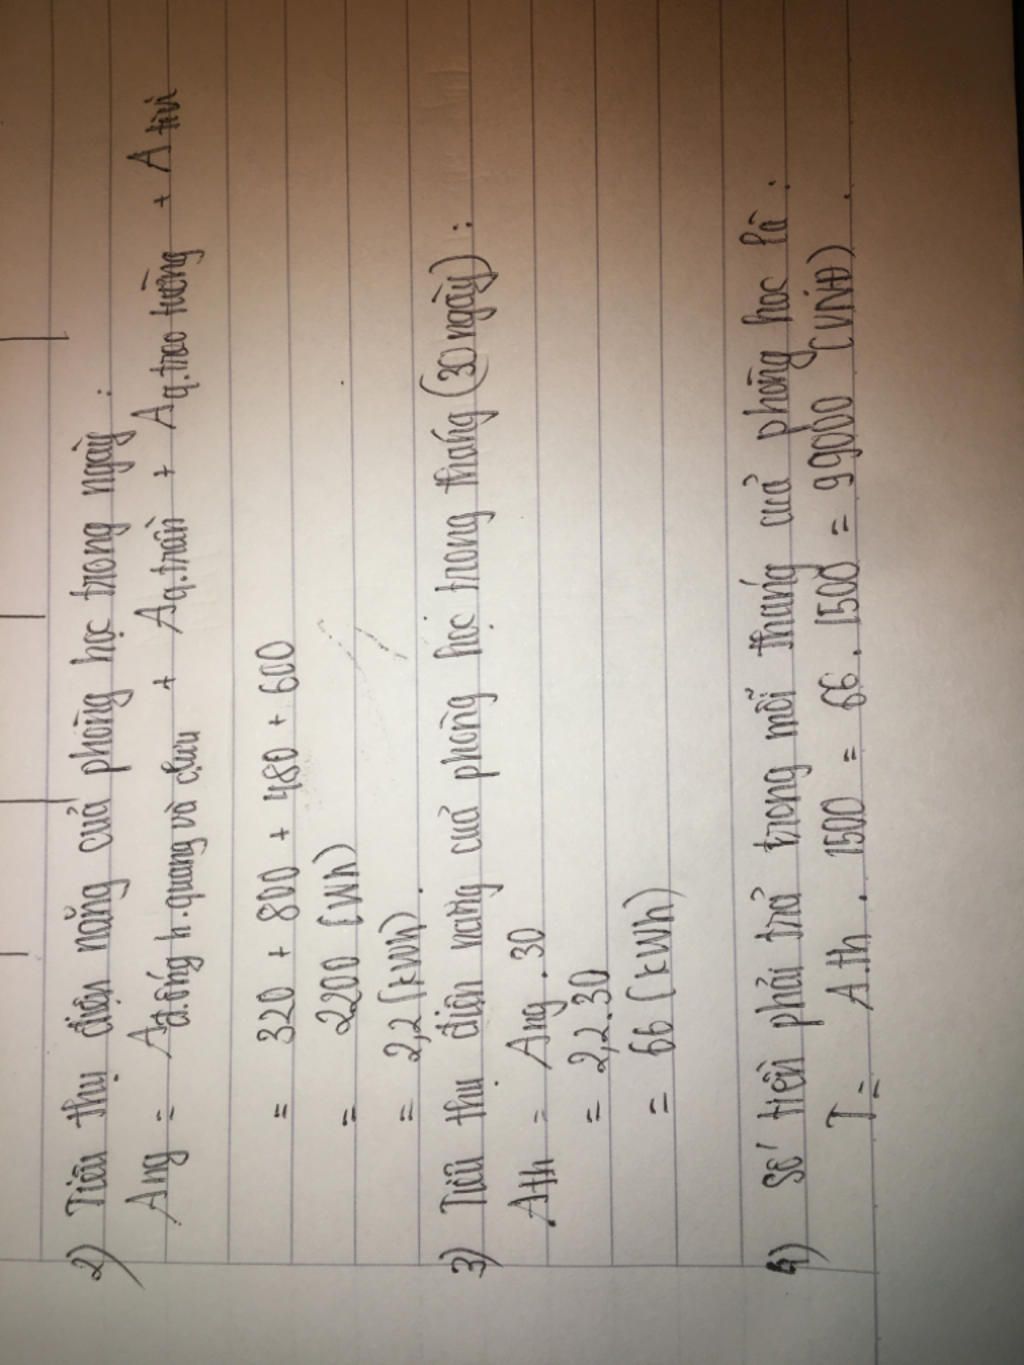 2) Tiêu thụ điện năng của phòng học trong ngày :
Ang = Ađ.ống h.quang và c.lưu + Aq.trần + Aq.treo tường + Ativi
= 320 + 800 + 480 + 600
= 2200 (Wh)
= 2,2 (kWh).
3) Tiêu thụ điện năng của phòng học trong tháng (30 ngày) :
Ath = Ang . 30
= 2,2.30
= 66 (kWh)
4) Số tiền phải trả trong mỗi tháng của phòng học là :
T = A.th . 1500 = 66 . 1500 = 99000 (VNĐ) .